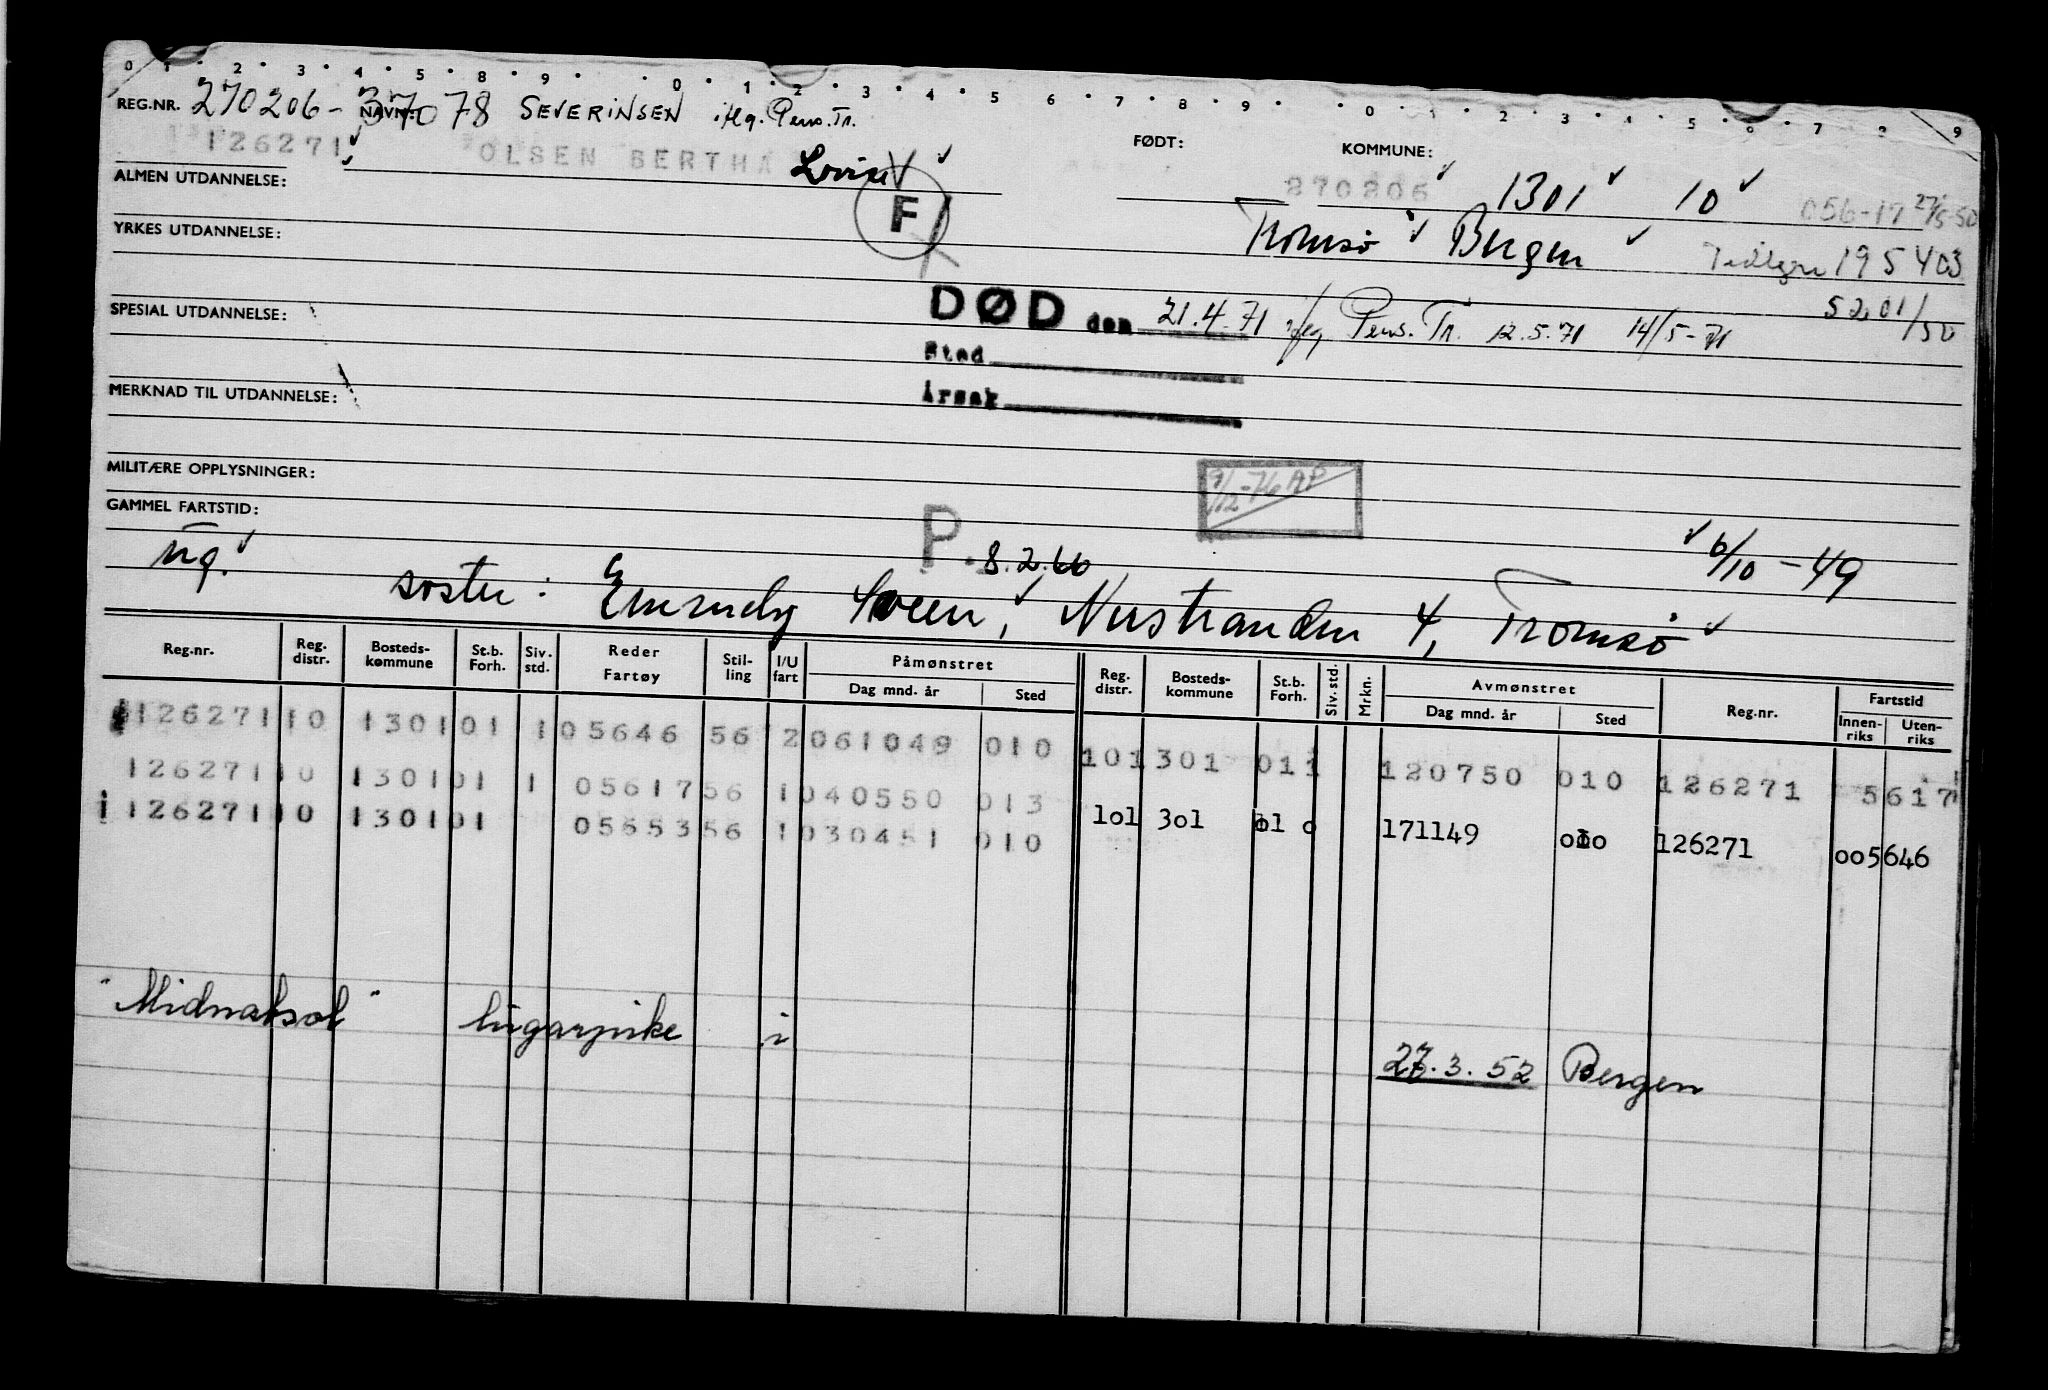 0 1 2 3 4 5 8 9 0 1 2 3 4 5 6 7 8 9 0 1 2 3 4 5 6 7 8 9
REG.NR. 270206-37078 NAVN: SEVERINSEN iflg. Pens. Tr.
126271 OLSEN BERTHA Lovise FØDT: 270206 KOMMUNE: 1301 10 056-17 27/5-50
ALMEN UTDANNELSE: F
YRKES UTDANNELSE: Tromsø Bergen Tidligere 195403
5201/50
SPESIAL UTDANNELSE: DØD den 21.4.71 iflg Pens. Tr. 12.5.71 14/5-71
Sted
MERKNAD TIL UTDANNELSE: Årsak
MILITÆRE OPPLYSNINGER: 9/12-76 AP
GAMMEL FARTSTID:
ug. P. 8.2.66 6/10-49
søster: Sveen, Nerstranden 4, Tromsø
Reg.nr. Reg. distr. Bosteds-kommune St.b. Forh. Siv. std. Reder Fartøy Stil-ling I/U fart Påmønstret Dag mnd. år Sted Reg. distr. Bosteds-kommune St.b. Forh. Siv. std. Mrkn. Avmønstret Dag mnd. år Sted Reg.nr. Fartstid Innen-riks Uten-riks
126271 10 1301 01 1 05646 56 2 061049 010 10 1301 011 120750 010 126271 5617
126271 10 1301 01 1 05617 56 1 040550 013 10 1301 01 0 171149 010 126271 005646
126271 10 1301 01 05653 56 1 030451 010
"Midnatsol" lugarpike i 27.3.52 Bergen